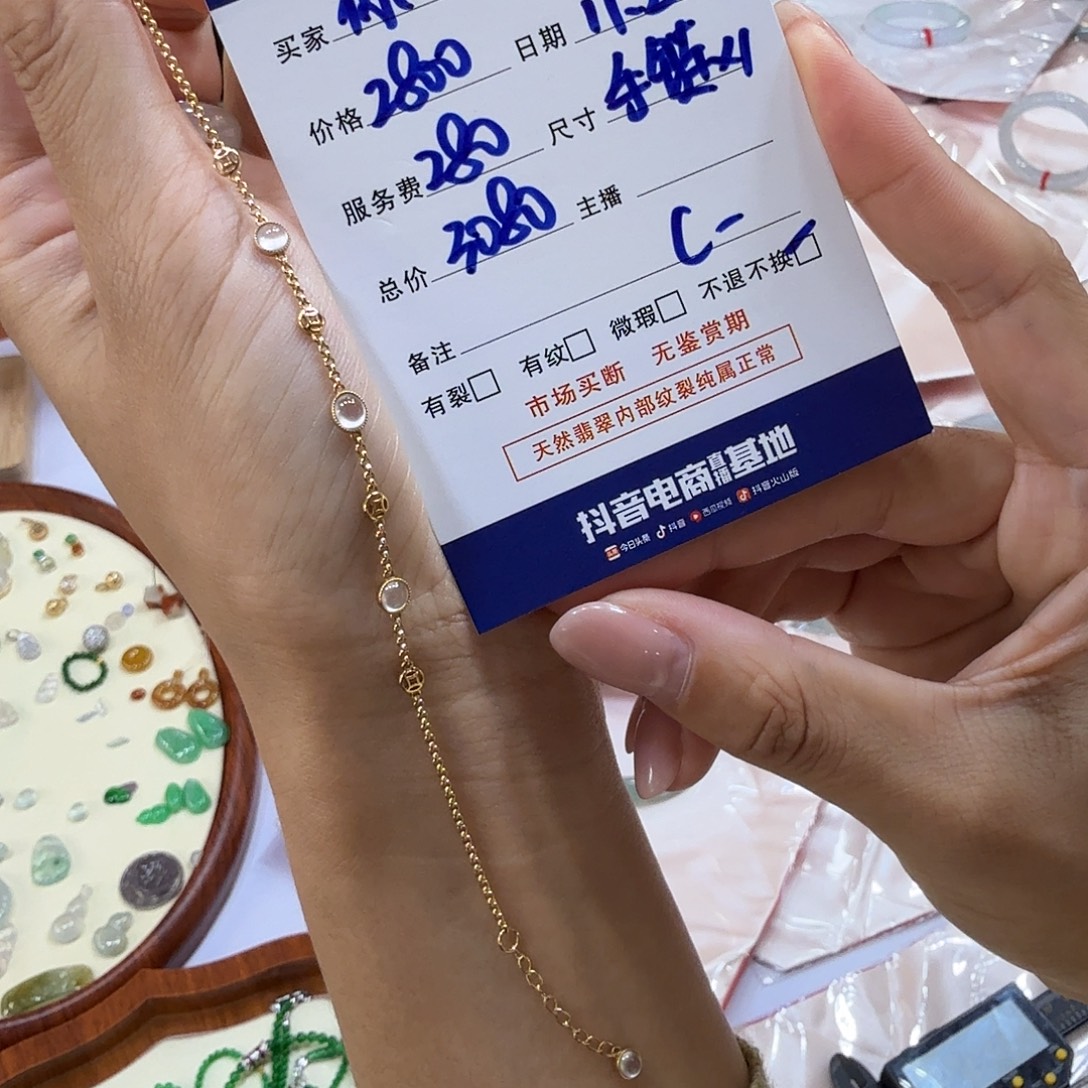 买家
日期 11.2
价格 2800
尺寸 手链x1
服务费 280
主播
总价 3080
C-
备注
有裂□ 有纹□ 微瑕□ 不退不换□
市场买断 无鉴赏期
天然翡翠内部纹裂纯属正常
抖音电商直播基地
今日头条 抖音 西瓜视频 抖音火山版